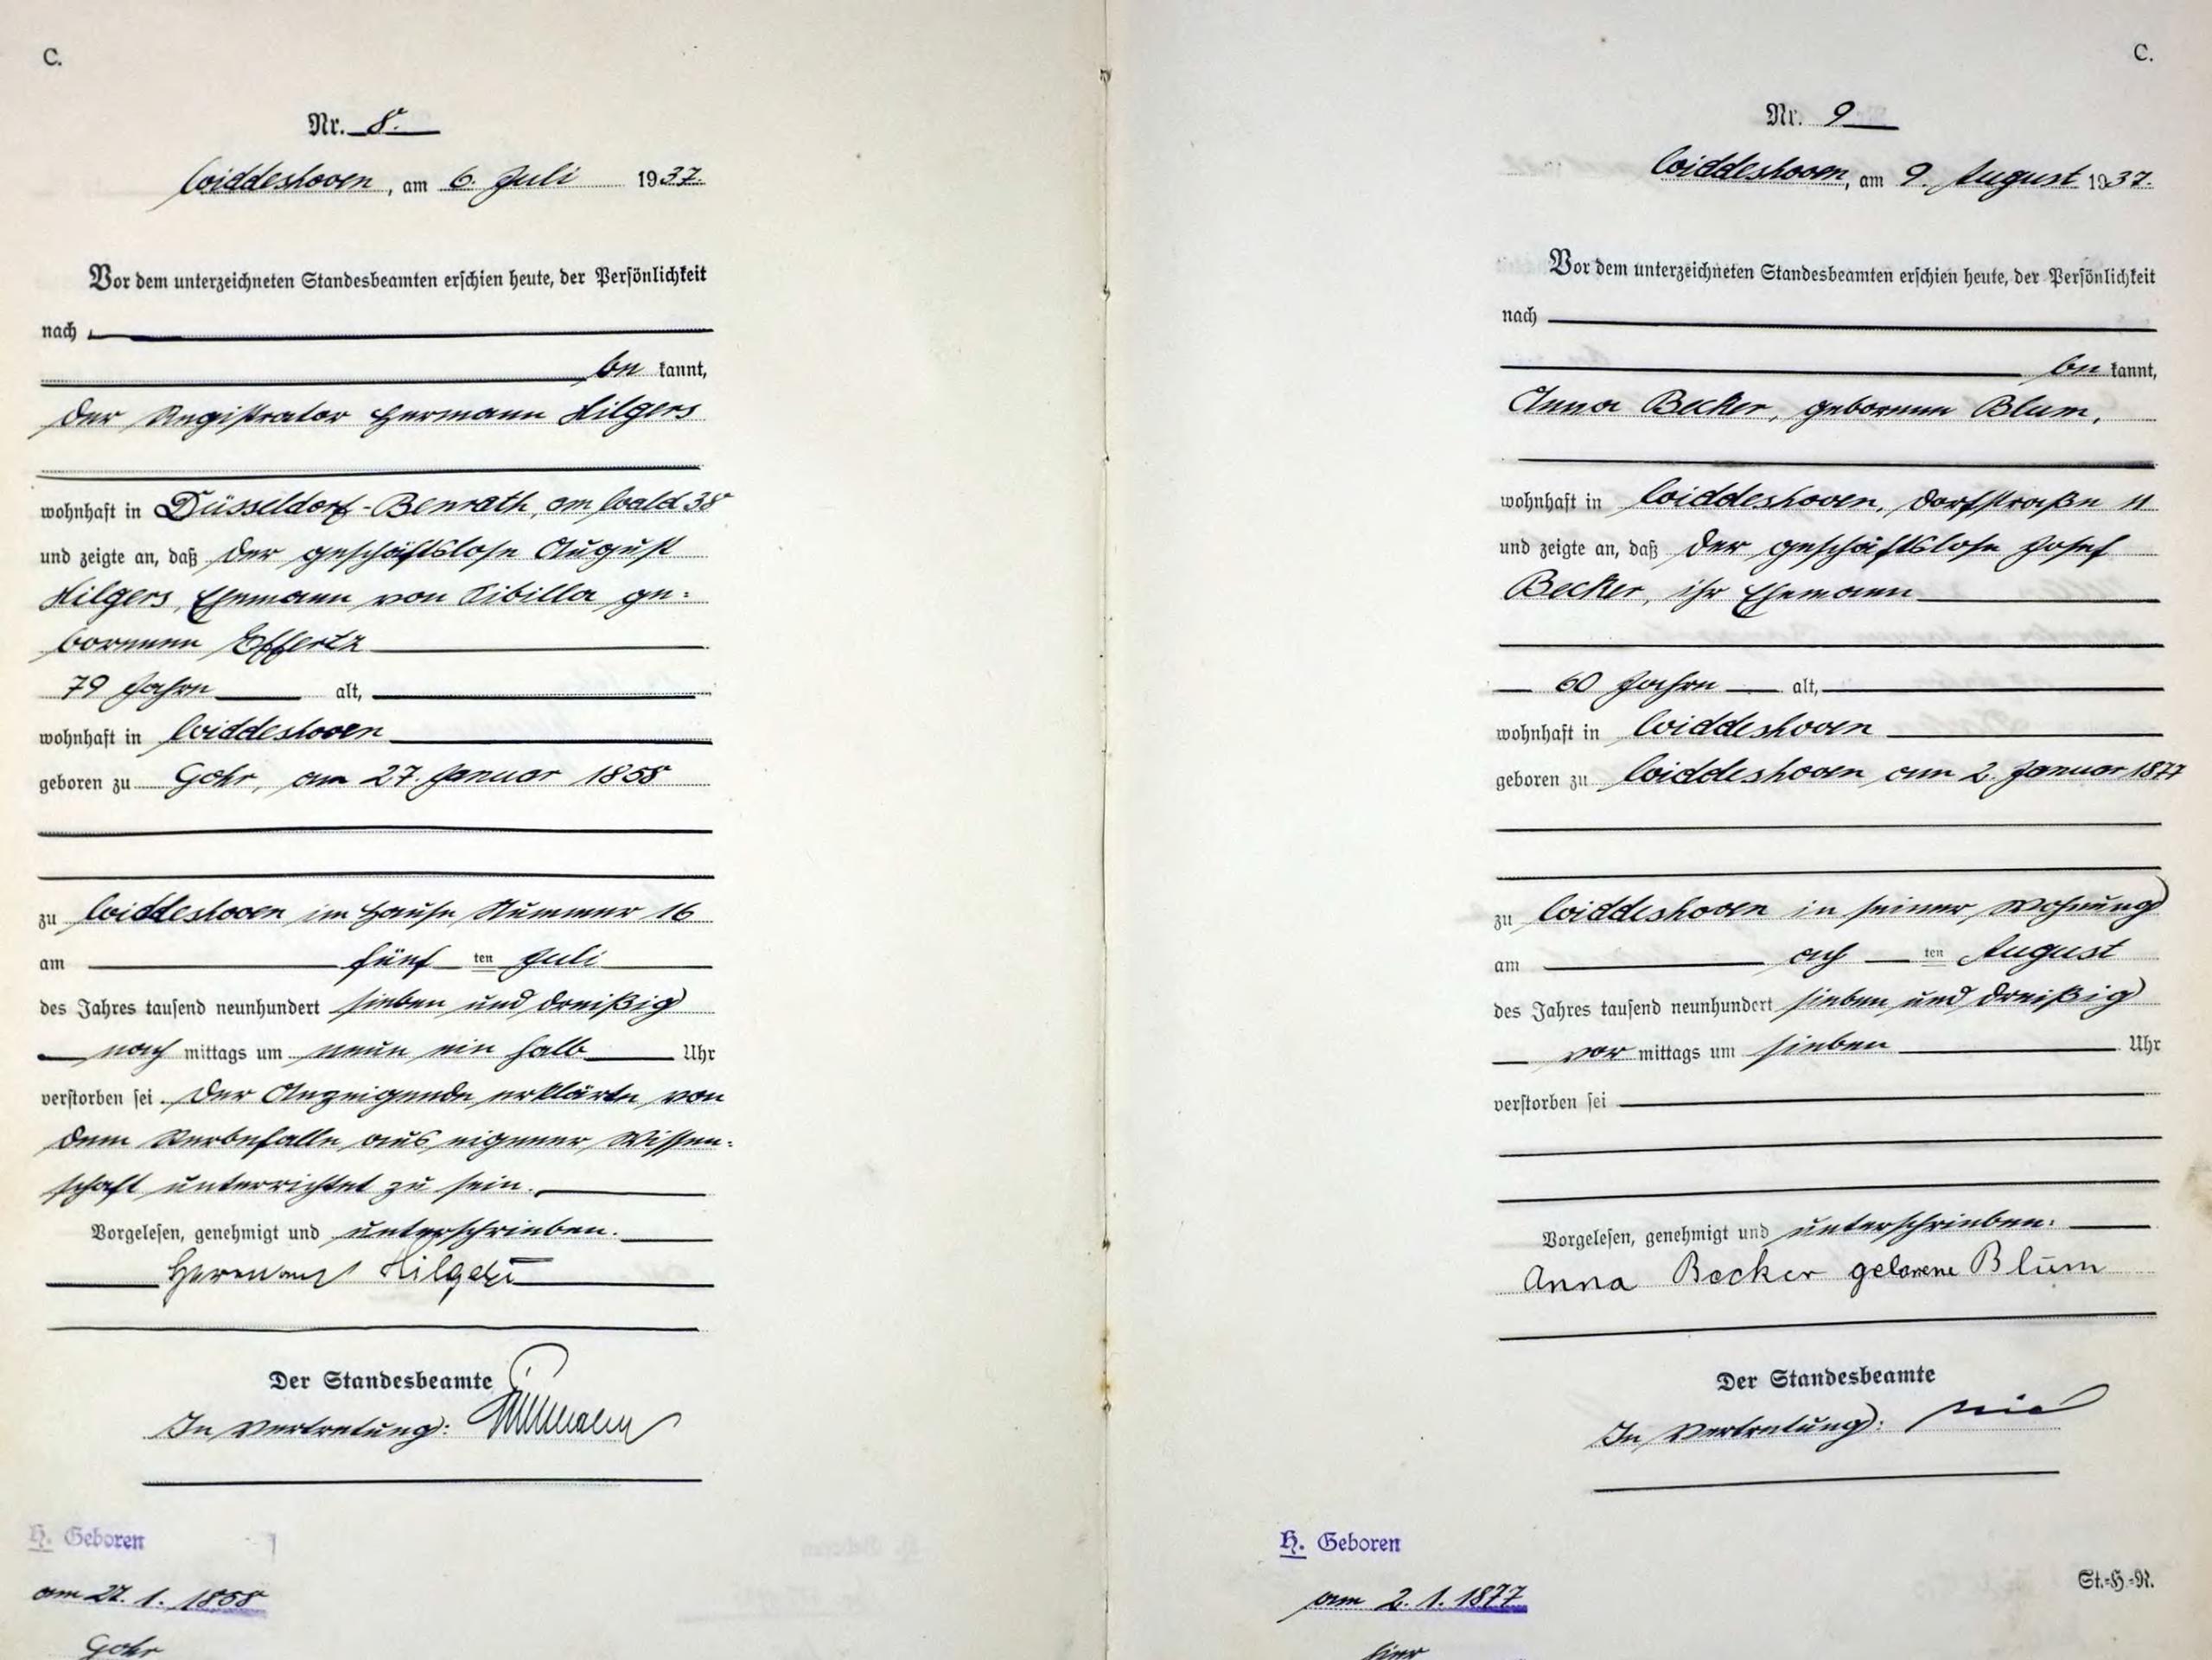 C.
Nr. 8.
Widdeshoven, am 6. Juli 1937.
Vor dem unterzeichneten Standesbeamten erschien heute, der Persönlichkeit
nach
be kannt,
der Registrator Hermann Hilgers
wohnhaft in Düsseldorf-Benrath, am Wald 38
und zeigte an, daß der geschäftslose August
Hilgers, Ehemann von Sibilla ge=
borenen Effertz
79 Jahre alt,
wohnhaft in Widdeshoven
geboren zu Gohr, am 27. Januar 1858
zu Widdeshoven im Hause Nummer 16
am fünf ten Juli
des Jahres tausend neunhundert sieben und dreißig
nach mittags um neun ein halb Uhr
verstorben sei. Der Anzeigende erklärte von
dem Sterbefalle aus eigener Wissen=
schaft unterrichtet zu sein.
Vorgelesen, genehmigt und unterschrieben.
Hermann Hilgers
Der Standesbeamte
In Vertretung:
H. Geboren
am 27. 1. 1858
Gohr
C.
Nr. 9
Widdeshoven, am 9. August 1937.
Vor dem unterzeichneten Standesbeamten erschien heute, der Persönlichkeit
nach
be kannt,
Anna Becker, geborene Blum,
wohnhaft in Widdeshoven, Dorfstraße 11
und zeigte an, daß der geschäftslose Josef
Becker, ihr Ehemann
60 Jahre alt,
wohnhaft in Widdeshoven
geboren zu Widdeshoven am 2. Januar 1877
zu Widdeshoven in seiner Wohnung
am ach ten August
des Jahres tausend neunhundert sieben und dreißig
vor mittags um sieben Uhr
verstorben sei
Vorgelesen, genehmigt und unterschrieben.
Anna Becker geborene Blum
Der Standesbeamte
In Vertretung:
H. Geboren
am 2. 1. 1877
hier
St.=H.=R.